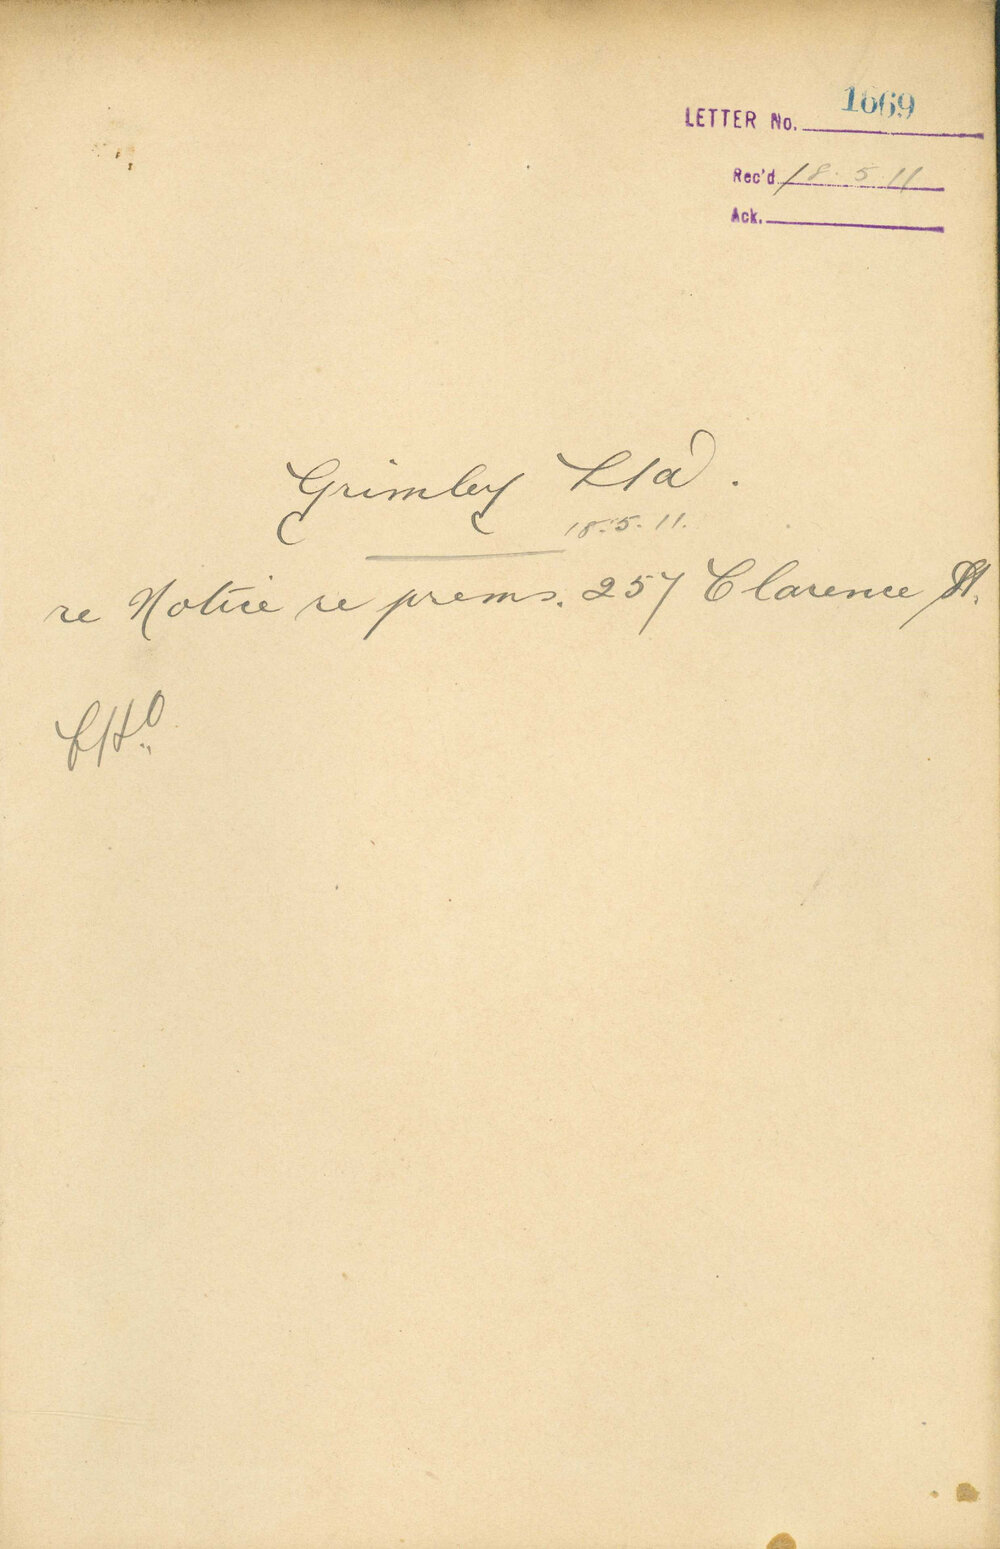 LETTER No. 1669
Rec'd 18.5.11
Ack.
Grimley Ltd.
18.5.11.
re Notice re prems. 257 Clarence St.
CHO